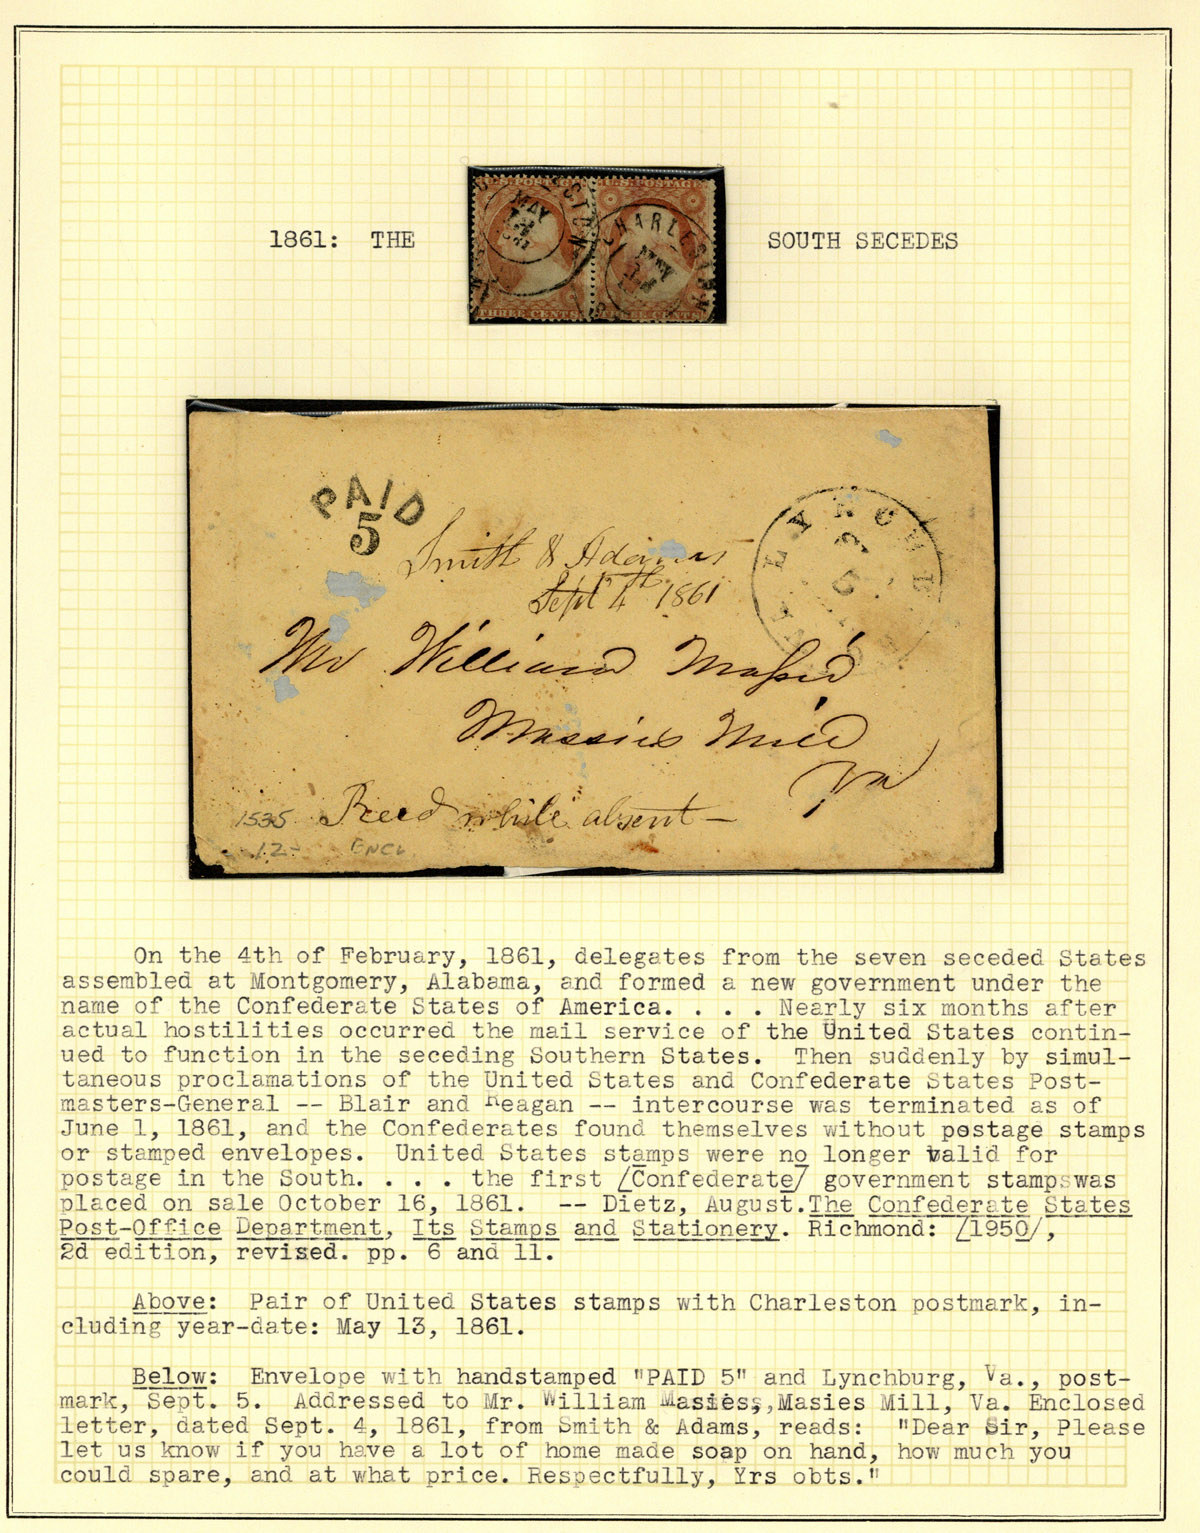 U.S. POSTAGE
CHARLESTON
MAY
THREE CENTS
THREE CENTS
1861: THE SOUTH SECEDES
PAID
5
LYNCHBU
VA
Smith & Adams
Sept 4th 1861
Mr William Massie
Massies Mill
Va
1535 Recd while absent—
12- ENCL
On the 4th of February, 1861, delegates from the seven seceded States
assembled at Montgomery, Alabama, and formed a new government under the
name of the Confederate States of America. . . . Nearly six months after
actual hostilities occurred the mail service of the United States contin-
ued to function in the seceding Southern States. Then suddenly by simul-
taneous proclamations of the United States and Confederate States Post-
masters-General -- Blair and Reagan -- intercourse was terminated as of
June 1, 1861, and the Confederates found themselves without postage stamps
or stamped envelopes. United States stamps were no longer valid for
postage in the South. . . . the first /Confederate/ government stamps was
placed on sale October 16, 1861. -- Dietz, August. The Confederate States
Post-Office Department, Its Stamps and Stationery. Richmond: /1950/,
2d edition, revised. pp. 6 and 11.
Above: Pair of United States stamps with Charleston postmark, in-
cluding year-date: May 13, 1861.
Below: Envelope with handstamped "PAID 5" and Lynchburg, Va., post-
mark, Sept. 5. Addressed to Mr. William Masiess, Masies Mill, Va. Enclosed
letter, dated Sept. 4, 1861, from Smith & Adams, reads: "Dear Sir, Please
let us know if you have a lot of home made soap on hand, how much you
could spare, and at what price. Respectfully, Yrs obts."